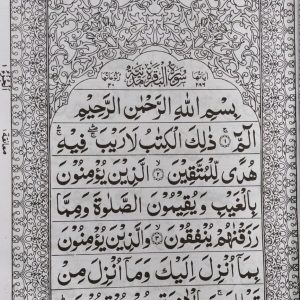 سُوْرَةُ الْبَقَرَةِ
بِسْمِ اللّٰهِ الرَّحْمٰنِ الرَّحِيْمِ
الٓمّٓ ۚ۝۱ ذٰلِكَ الْكِتٰبُ لَا رَيْبَ ۛۚ فِيْهِ ۛۚ
هُدًى لِّلْمُتَّقِيْنَ ۝۲ الَّذِيْنَ يُؤْمِنُوْنَ
بِالْغَيْبِ وَيُقِيْمُوْنَ الصَّلٰوةَ وَمِمَّا
رَزَقْنٰهُمْ يُنْفِقُوْنَ ۝۳ وَالَّذِيْنَ يُؤْمِنُوْنَ
بِمَآ اُنْزِلَ اِلَيْكَ وَمَآ اُنْزِلَ مِنْ